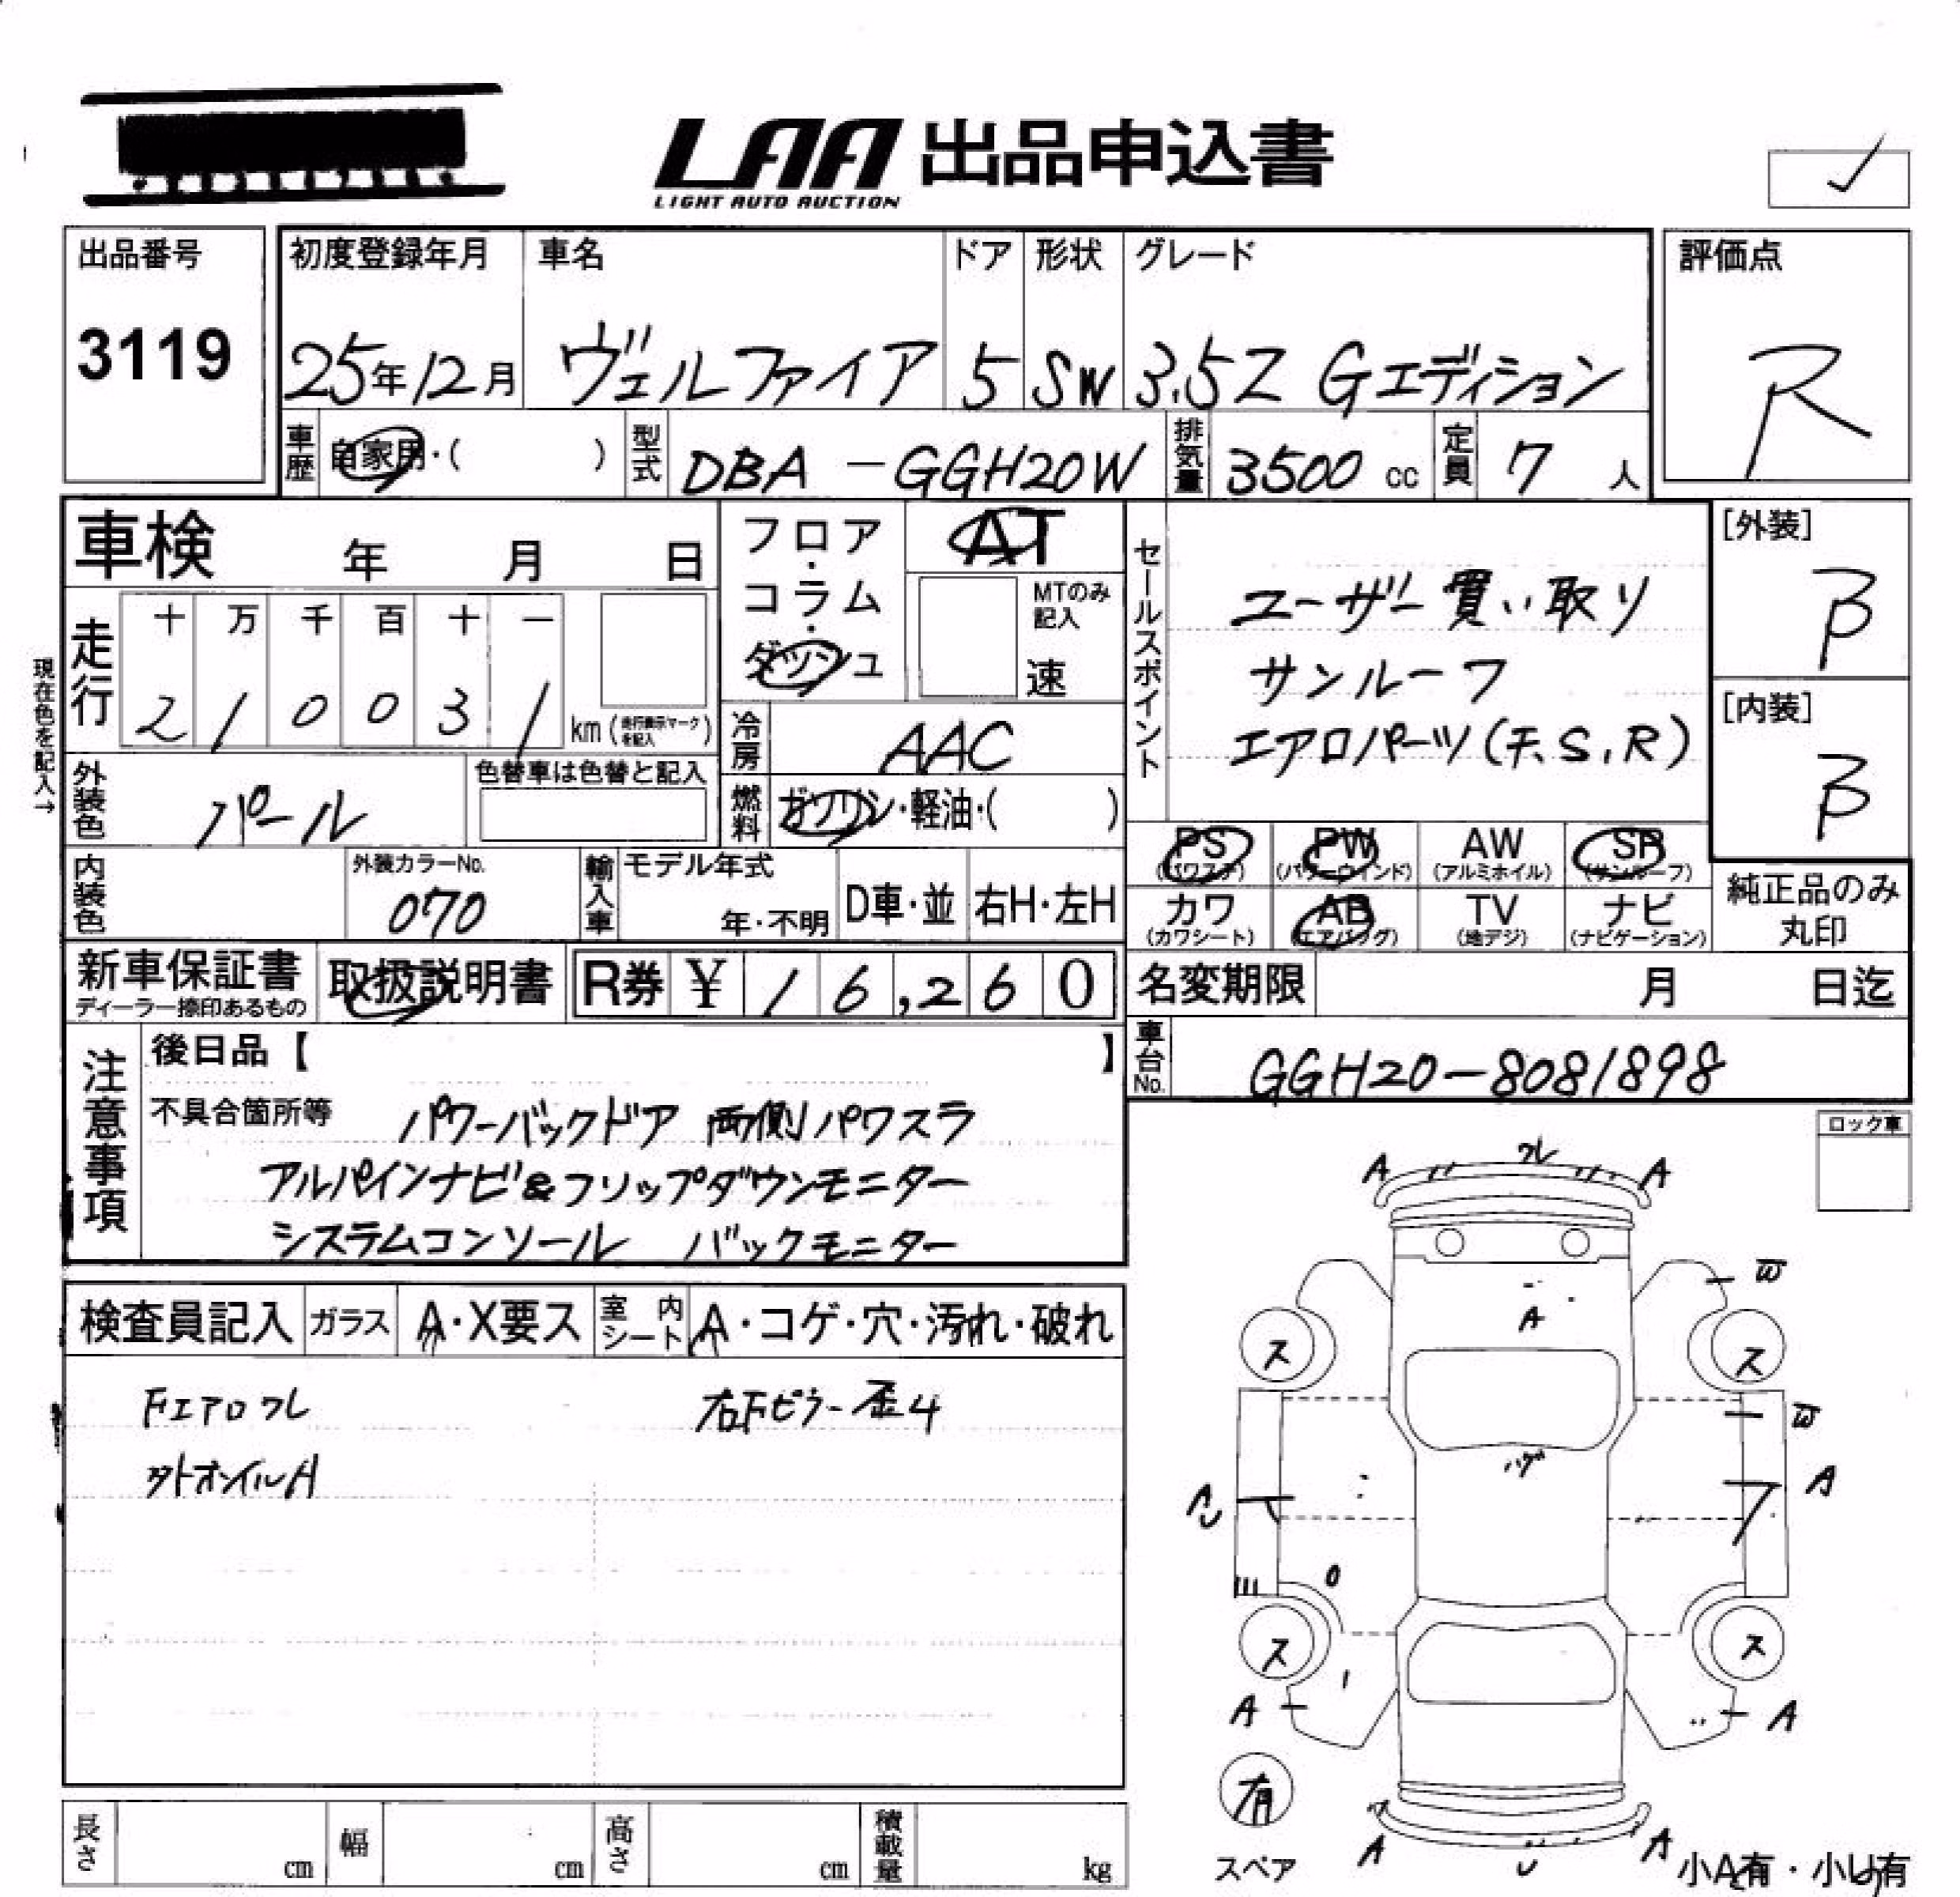 LAA 出品申込書
LIGHT AUTO AUCTION
出品番号
3119
初度登録年月 車名 ドア 形状 グレード
25年12月 ヴェルファイア 5 SW 3.5Z Gエディション
評価点
R
車歴 自家用・( ) 型式 DBA-GGH20W 排気量 3500 cc 定員 7 人
車検 年 月 日
フロア・コラム・ダッシュ
AT
MTのみ記入
速
現在色を記入→
走行
十 万 千 百 十 一
2 1 0 0 3 1 km (走行表示マークを記入)
冷房 AAC
セールスポイント
ユーザー買い取り
サンルーフ
エアロパーツ(F、S、R)
[外装]
B
[内装]
B
外装色 パール
色替車は色替と記入
燃料 ガソリン・軽油・( )
PS (パワステ) PW (パワーウインド) AW (アルミホイル) SR (サンルーフ)
カワ (カワシート) AB (エアバッグ) TV (地デジ) ナビ (ナビゲーション)
純正品のみ
丸印
内装色 外装カラーNo. 070
輸入車 モデル年式 年・不明 D車・並 右H・左H
新車保証書
ディーラー捺印あるもの
取扱説明書 R券 ¥ 16,260
名変期限 月 日迄
車台No. GGH20-8081898
注意事項
後日品【 】
不具合箇所等 パワーバックドア 両側パワスラ
アルパインナビ&フリップダウンモニター
システムコンソール バックモニター
検査員記入 ガラス A・X要ス 室内シート A・コゲ・穴・汚れ・破れ
Fエアロワレ 右Fピラー歪4
外ホイルA
ロック車
A ワレ A
W
A
ス ス
W
ハゲ
A
AU
ス ス
A A
有
スペア
A U A
小A有・小U有
長さ cm 幅 cm 高さ cm 積載量 kg